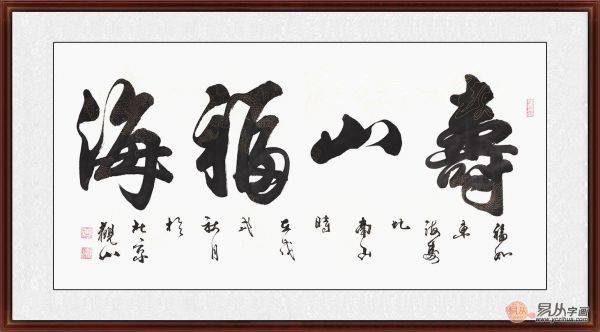 壽山福海
福如
東
海壽
比
南山
時
在戊
戌
秋月
於
北京
觀山
易从字画
www.yczihua.com